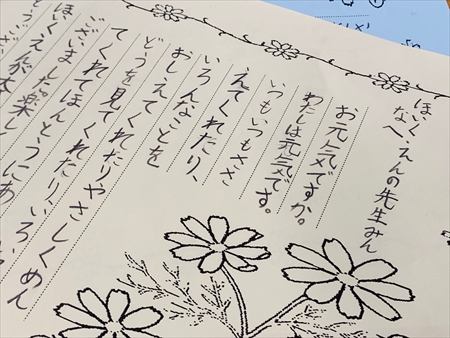 ほいくえんの先生みん
なへ、
お元気ですか。
わたしは元気です。
いつもいつもささ
えてくれたり、
いろんなことを
おしえてくれたりやさしくめん
どうを見てくれたり、いろ
てくれてほんとうにあ
ございました。楽し
ほいくえんが大